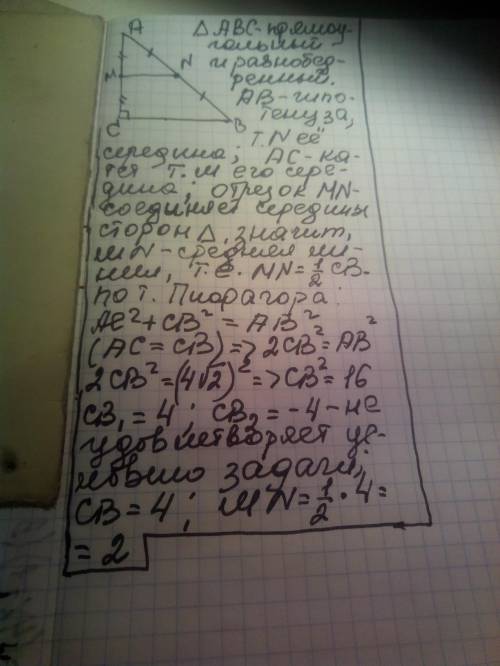 A
M
N
C
B
△ ABC - прямоу-
гольный
и равнобед-
ренный.
AB - гипо-
тенуза,
т. N её
середина; AC - ка-
тет т. M его сере-
дина; отрезок MN-
соединяет середины
сторон △, значит,
MN - средняя ли-
ния, т.е. MN = 1/2 CB.
По т. Пифагора:
AC² + CB² = AB²
(AC = CB) => 2CB² = AB²
2CB² = (4√2)² => CB² = 16
CB₁ = 4; CB₂ = -4 - не
удовлетворяет ус-
ловию задачи,
CB = 4; MN = 1/2 · 4 =
= 2